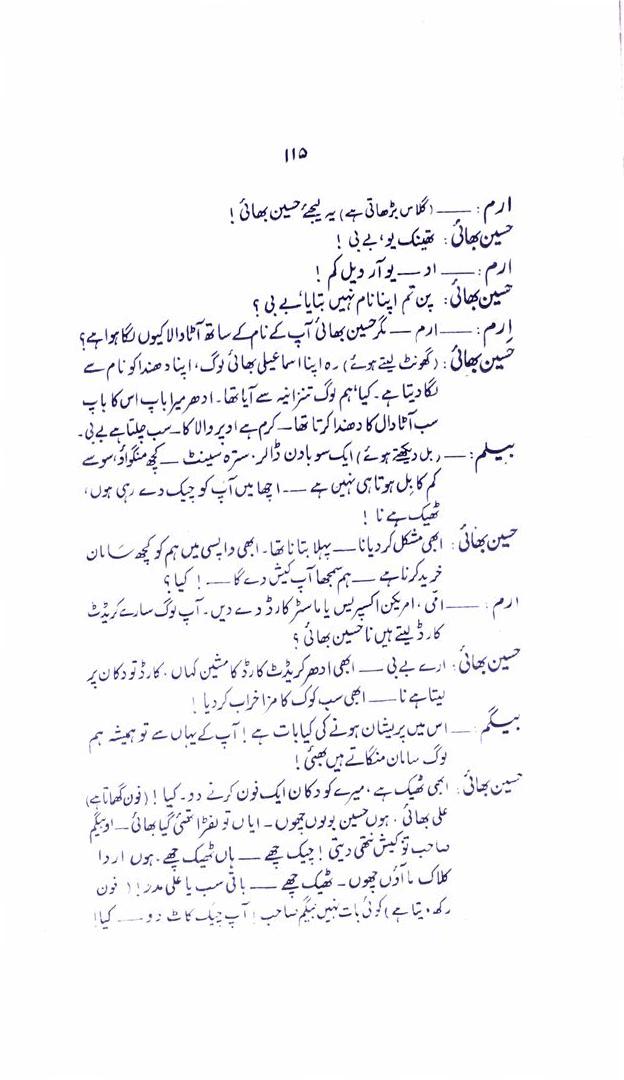 ۱۱۵
ارم : —— (گلاس بڑھاتی ہے) یہ لیجئے حسین بھائی !
حسین بھائی : تھینک یو، بے بی !
ارم : —— او — یو آر ویل کم !
حسین بھائی : پن تم اپنا نام نہیں بتایا، بے بی ؟
ارم : —— ارم — مگر حسین بھائی آپ کے نام کے ساتھ آٹا والا کیوں لگا ہوا ہے؟
حسین بھائی : (گھونٹ لیتے ہوئے) وہ اپنا اسماعیلی بھائی لوگ، اپنا دھندا کو نام سے
لگا دیتا ہے۔ کیا، ہم لوگ تنزانیہ سے آیا تھا۔ ادھر میرا باپ اس کا باپ
سب آٹا دال کا دھندا کرتا تھا — کرم ہے اوپر والا کا — سب چلتا ہے بے بی۔
بیگم : — (بل دیکھتے ہوئے) ایک سو باون ڈالر، سترہ سینٹ — کچھ منگواؤ، سو سے
کم کا بل ہوتا ہی نہیں ہے —— اچھا میں آپ کو چیک دے رہی ہوں،
ٹھیک ہے نا !
حسین بھائی : ابھی مشکل کر دیا نا — پہلا بتانا تھا۔ ابھی واپسی میں ہم کو کچھ سامان
خرید کرنا ہے — ہم سمجھا آپ کیش دے گا — ! کیا ؟
ارم : —— امّی، امریکن اکسپریس یا ماسٹر کارڈ دے دیں۔ آپ لوگ سارے کریڈٹ
کارڈ لیتے ہیں نا حسین بھائی ؟
حسین بھائی : ارے بے بی — ابھی ادھر کریڈٹ کارڈ کا مشین کہاں، کارڈ تو دکان پر
لیتا ہے نا — ابھی سب کوک کا مزا خراب کر دیا !
بیگم : — اس میں پریشان ہونے کی کیا بات ہے ! آپ کے یہاں سے تو ہمیشہ ہم
لوگ سامان منگاتے ہیں بھئی !
حسین بھائی : ابھی ٹھیک ہے، میرے کو دکان ایک فون کرنے دو۔ کیا ! (فون گھماتا ہے)
علی بھائی، ہوں حسین بولوں چھوں۔ ایاں تو لفڑا تھئی گیا بھائی — او بیگم
صاحب تو کیش نتھی دیتی ! چیک چھے — ہاں ٹھیک چھے۔ ہوں اردا
کلاک ما آؤں چھوں۔ ٹھیک چھے — باقی سب یا علی مدد !! (فون
رکھ دیتا ہے) کوئی بات نہیں بیگم صاحب ! آپ چیک کاٹ دو — کیا!